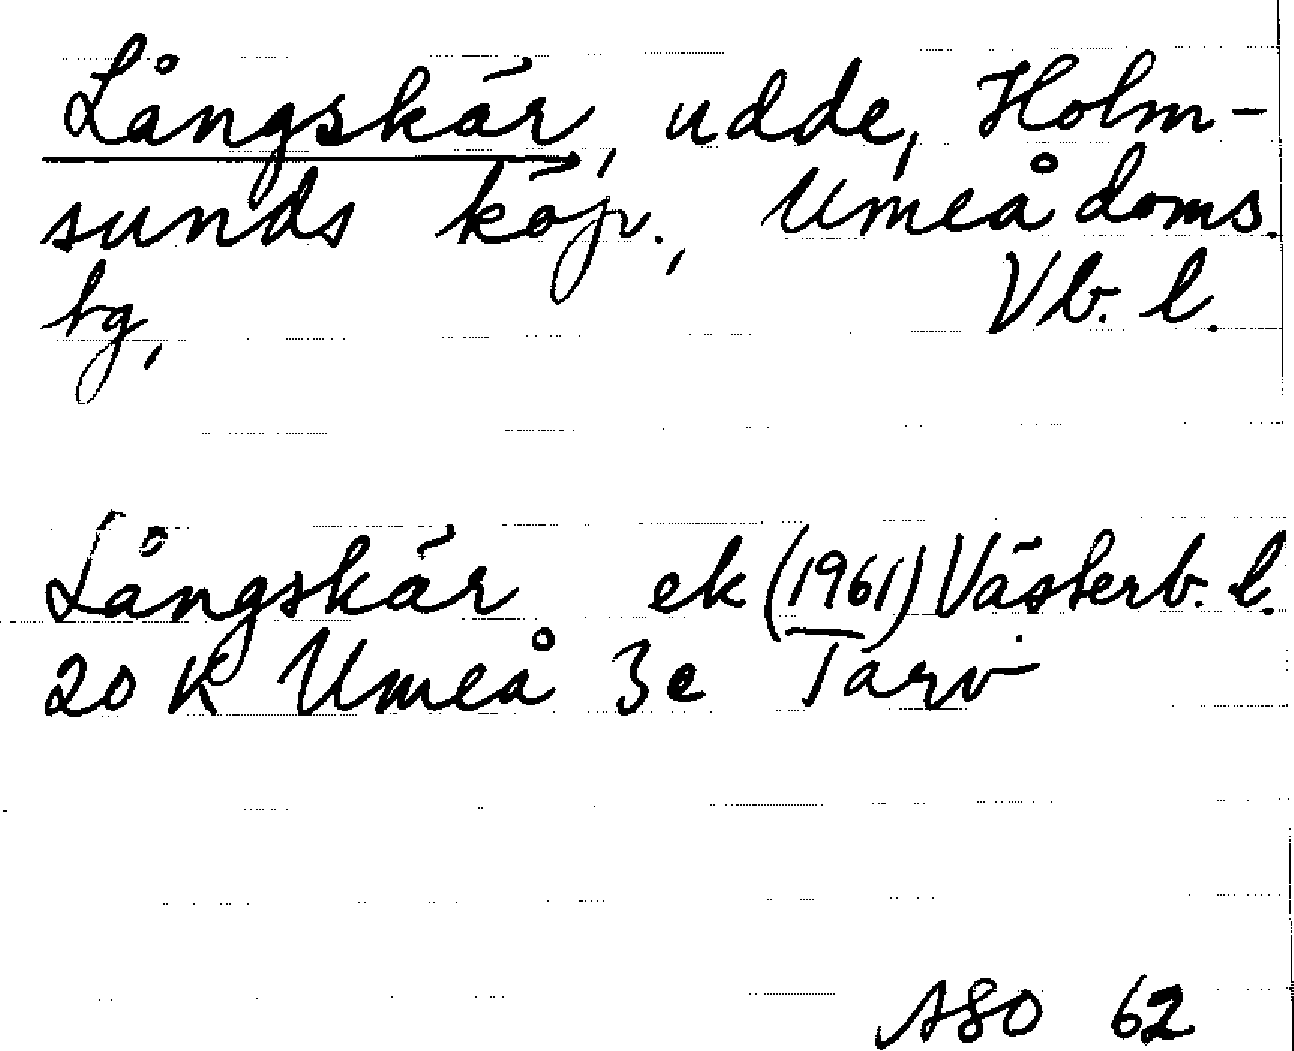 Långskär, udde, Holm-
sunds köp., Umeå doms.
hg, Vb. l.
Långskär ek (1961) Västerb. l.
20 K Umeå 3e Tarv
ASO 62